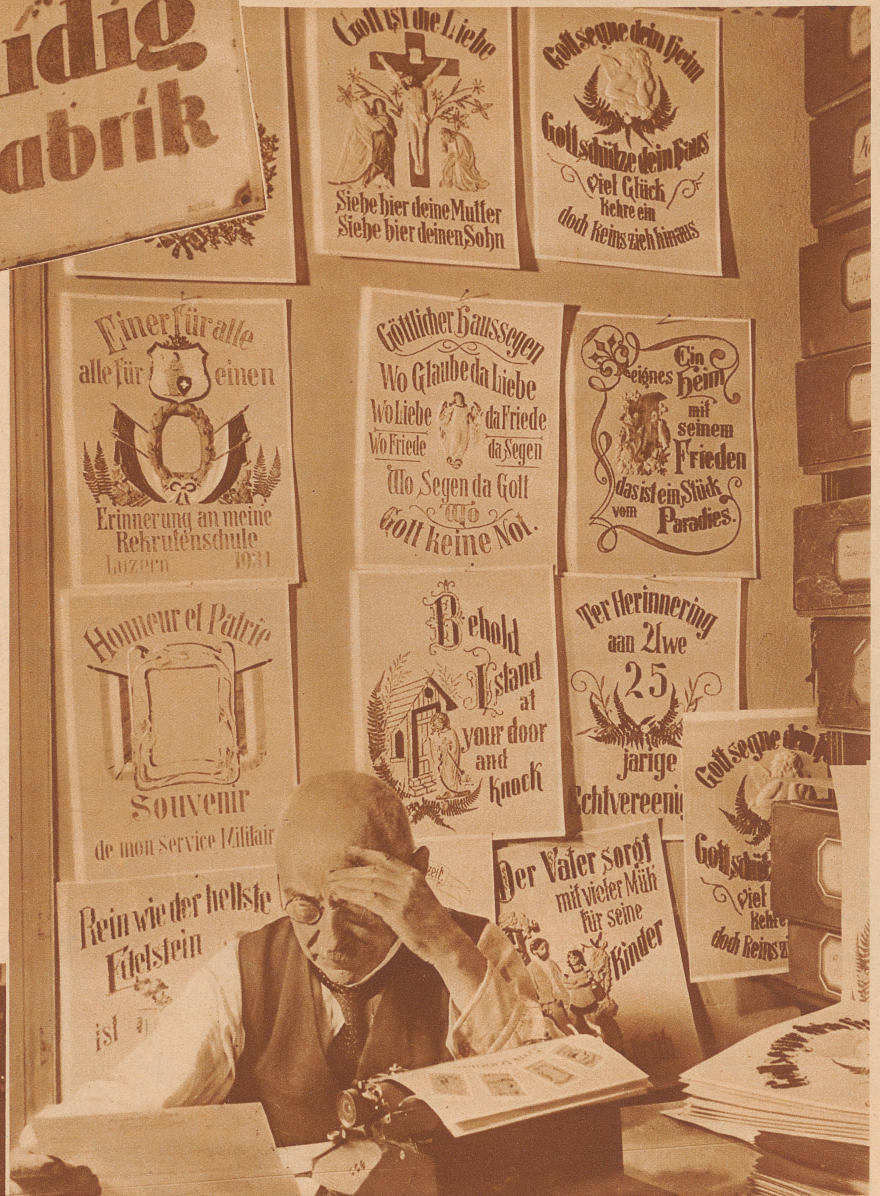 abrik
Gott ist die Liebe
Siehe hier deine Mutter
Siehe hier deinen Sohn
Gott segne dein Heim
Gott schütze dein Haus
viel Glück
kehre ein
doch keins zieh hinaus
Einer für alle
alle für einen
Erinnerung an meine
Rekrutenschule
Luzern 1931
Göttlicher Haussegen
Wo Glaube da Liebe
Wo Liebe da Friede
Wo Friede da Segen
Wo Segen da Gott
Wo
Gott keine Not.
Ein
eignes Heim
mit
seinem
Frieden
das ist ein Stück
vom Paradies.
Honneur et Patrie
Souvenir
de mon service Militair
Behold
I stand
at
your door
and
knock
Ter Herinnering
aan Uwe
25
jarige
Echtvereenig
Gott segne dein
Gott schüt
viel
kehre
doch keins z
Rein wie der hellste
Edelstein
ist
Der Vater sorgt
mit vieler Müh
für seine
Kinder